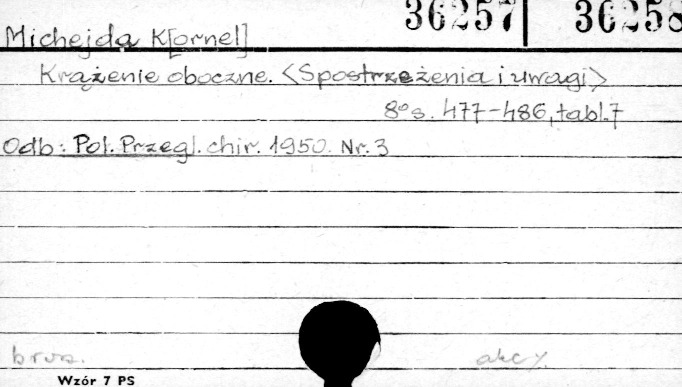 36257 36258
Michejda K[ornel]
Krążenie oboczne. <Spostrzeżenia i uwagi>
8° s. 477-486, tabl. 7
Odb: Pol. Przegl. chir. 1950. Nr. 3
brosz. akc
Wzór 7 PS